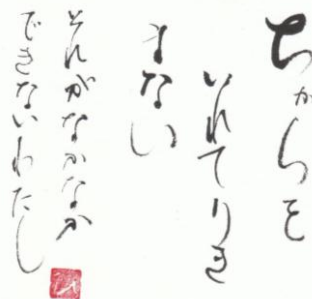 ちからを
いれてりき
まない
それがなかなか
できないわたし